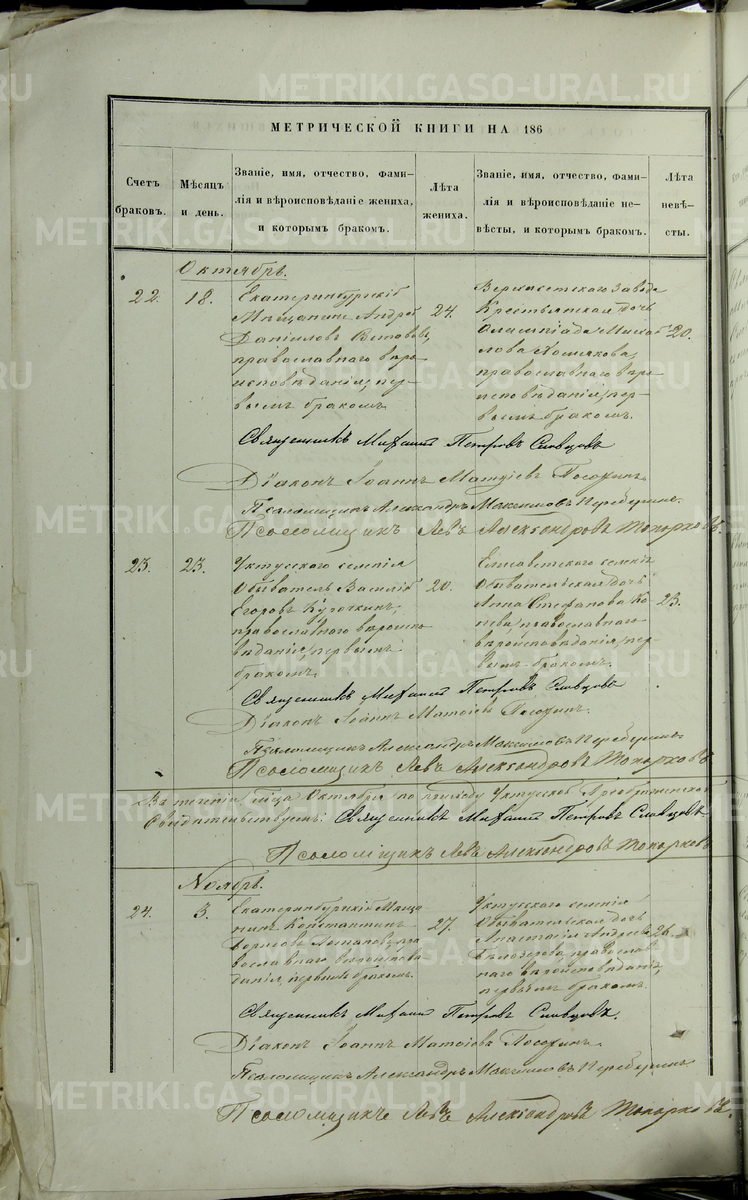 МЕТРИЧЕСКОЙ КНИГИ НА 186
Счетъ
браковъ.
Мѣсяцъ
и день.
Званіе, имя, отчество, фами-
лія и вѣроисповѣданіе жениха,
и которымъ бракомъ.
Лѣта
жениха.
Званіе, имя, отчество, фами-
лія и вѣроисповѣданіе не-
вѣсты, и которымъ бракомъ.
Лѣта
невѣ-
сты.
Октябрь.
22.
18.
Екатеринбургскій
Мѣщанинъ Андрей
Даніиловъ
православнаго вѣро-
исповѣданія, пер-
вымъ бракомъ
24.
Верхисетскаго Завода
Крестьянская дочь
Олимпіада Михай
лова Хомякова,
православнаго вѣро-
исповѣданія, пер-
вымъ бракомъ.
20.
Священникъ Михаилъ Петровъ Словцовъ
Діаконъ Іоаннъ Матѳіевъ
Псаломщикъ Александръ Максимовъ
Псаломщикъ Левъ Александровъ Топорковъ.
23.
23.
Уктусскаго селенія
Обыватель Василій
Егоровъ Курочкинъ,
православнаго вѣроиспо
вѣданія, первымъ
бракомъ.
20.
Елисаветскаго селенія
Обывательская дочь
Анна Стефанова Ко
нева, православнаго
вѣроисповѣданія, пер-
вымъ бракомъ.
23.
Священникъ Михаилъ Петровъ Словцовъ
Діаконъ Іоаннъ Матѳіевъ
Псаломщикъ Александръ Максимовъ
Псаломщикъ Левъ Александровъ Топорковъ
Въ теченіи м-ца Октября по приходу Уктусской Преображенской
Свидѣтельствуетъ: Священникъ Михаилъ Петровъ Словцовъ
Псаломщикъ Левъ Александровъ Топорковъ
Ноябрь.
24.
3.
Екатеринбургскій Мѣща
нинъ Константинъ
Борисовъ пра
вославнаго вѣроисповѣ
данія, первымъ бракомъ.
27.
Уктусскаго селенія
Обывательская дочь
Анастасія Андреева
Бѣлозерова православ
наго вѣроисповѣданія,
первымъ бракомъ.
26.
Священникъ Михаилъ Петровъ Словцовъ.
Діаконъ Іоаннъ Матѳіевъ
Псаломщикъ Александръ Максимовъ
Псаломщикъ Левъ Александровъ Топорковъ.
METRIKI.GASO-URAL.RU